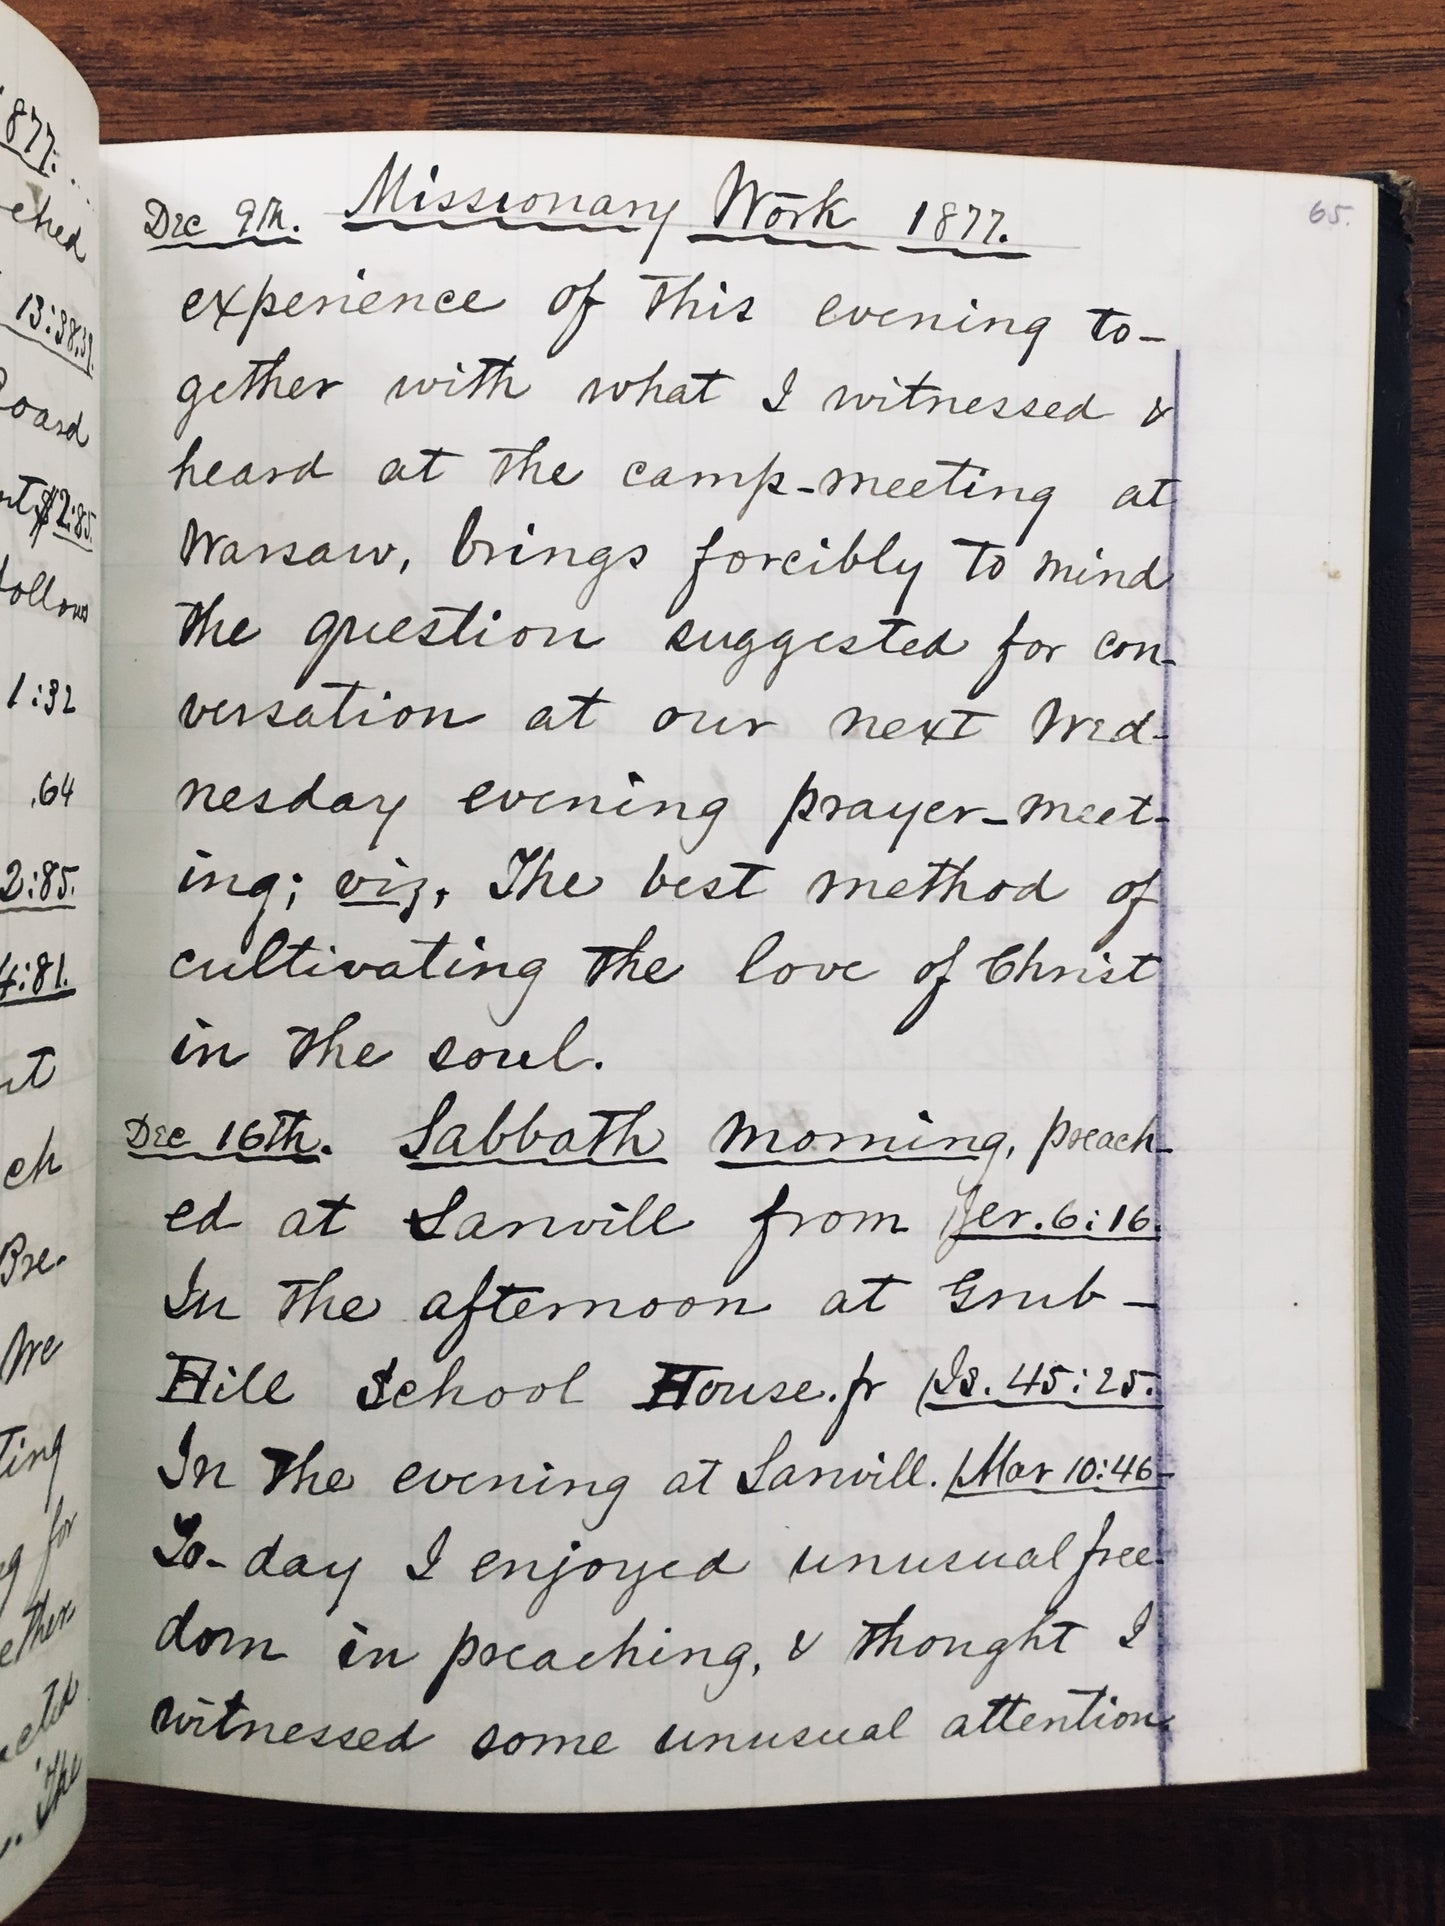 877.
ched
13:38,39.
Board
nt $2:85.
follows
1:32
.64
2:85.
4:81.
ch
Bre-
We
ting
for
ether
ected
The
Dec 9th. Missionary Work 1877. 65.
experience of this evening to-
gether with what I witnessed &
heard at the camp-meeting at
Warsaw, brings forcibly to mind
the question suggested for con-
versation at our next Wed-
nesday evening prayer-meet-
ing; viz, The best method of
cultivating the love of Christ
in the soul.
Dec 16th. Sabbath morning, preach-
ed at Sanvill from Jer. 6:16.
In the afternoon at Grub-
Hill School House. fr Is. 45:25.
In the evening at Sanvill. Mar 10:46-
To-day I enjoyed unusual free-
dom in preaching, & thought I
witnessed some unusual attention